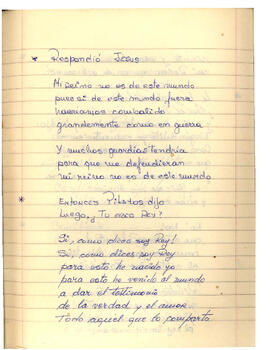 * Respondió Jesus
Mi reino no es de este mundo
pues si de este mundo fuera
hubieramos combatido
grandemente como en guerra
Y muchos guardias tendria
para que me defendieran
mi reino no es de este mundo
* Entonces Pilatos dijo
Luego, ¿Tu eres Rey?
Si, como dices soy Rey!
Si, como dices soy Rey
para esto he nacido yo
para esto he venido al mundo
a dar el testimonio
de la verdad y el amor
Todo aquel que lo comparta